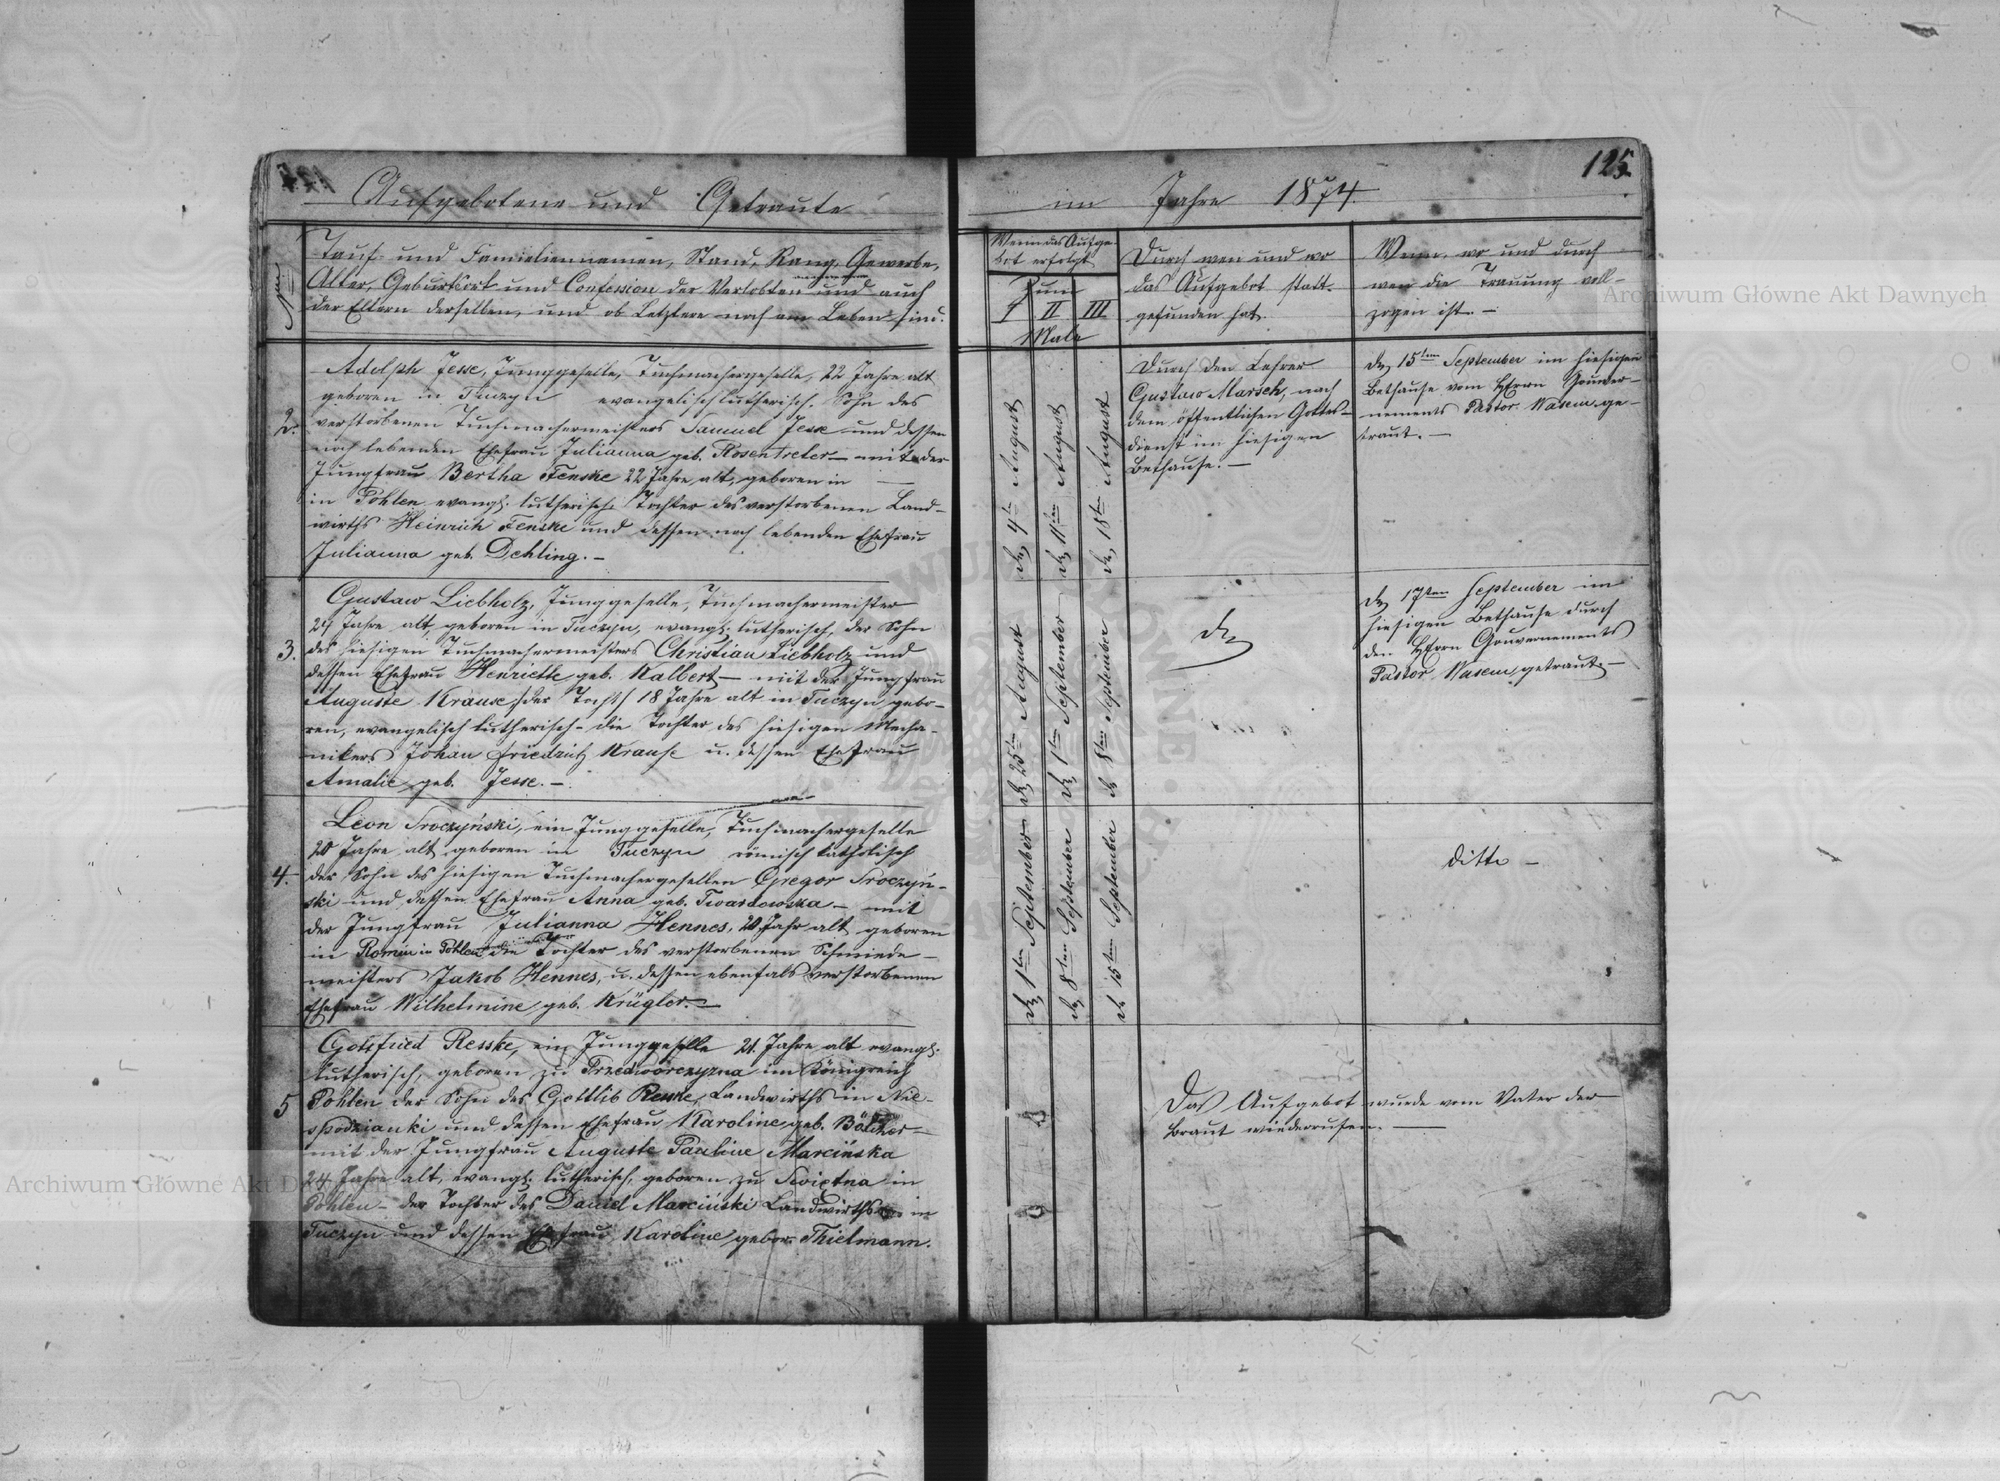 125
Aufgebotene und Getraute
im Jahre 1874.
Tauf- und Familiennamen, Stand, Rang, Gewerbe,
Alter, Geburtsort und Confession der Verlobten und auch
der Eltern derselben, und ob Letztere noch am Leben sind.
Wenn das Aufge-
bot erfolgt
Zum
I II III
Male
Durch wen und wo
das Aufgebot statt-
gefunden hat.
Wenn, wo und durch
wen die Trauung voll-
zogen ist. —
2.
Adolph Jesse, Junggeselle, Tuchmachergeselle, 22 Jahre alt
geboren in Tuczyn evangelisch lutherisch. Sohn des
verstorbenen Tuchmachermeisters Samuel Jesse und dessen
noch lebenden Ehefrau Julianna geb. Rosentreter — mit der
Jungfrau Bertha Fenske 22 Jahre alt, geboren in —
in Pohlen, evangl. lutherisch Tochter des verstorbenen Land-
wirths Heinrich Fenske und dessen noch lebenden Ehefrau
Julianna geb. Dehling. —
den 4ten August
den 11ten August
den 18ten August
Durch den Lehrer
Gustaw Marsch, nach
dem öffentlichen Gottes-
dienst im hiesigen
Bethause. —
den 15ten September im hiesigen
Bethause vom Herrn Gouver-
nements Pastor Wasem ge-
traut. —
3.
Gustaw Liebholz, Junggeselle, Tuchmachermeister
24 Jahre alt, geboren in Tuczyn, evangl. lutherisch, der Sohn
des hiesigen Tuchmachermeisters Christian Liebholz und
dessen Ehefrau Henriette geb. Kalbert — mit der Jungfrau
Auguste Krause, /der Tocht/ 18 Jahre alt in Tuczyn gebo-
ren, evangelisch lutherisch - die Tochter des hiesigen Mecha-
nikers Johan Friedrich Krause u. dessen Ehefrau
Amalie geb. Jesse. —
den 25ten August
den 1ten September
den 8ten September
den 17ten September im
hiesigen Bethause durch
den Herrn Gouvernements
Pastor Wasem, getraut. —
4.
Leon Sroczyński, ein Junggeselle, Tuchmachergeselle
20 Jahre alt, geboren in Tuczyn römisch katholisch
der Sohn des hiesigen Tuchmachergesellen Gregor Sroczyń-
ski und dessen Ehefrau Anna geb. Twardowska — mit
der Jungfrau Julianna Hennes, 20 Jahr alt geboren
in Romin in Pohlen die Tochter des verstorbenen Schmiede-
meisters Jakob Hennes, u. dessen ebenfals verstorbenen
Ehefrau Wilhelmine geb. Krügler. —
den 1ten September
den 8ten September
den 15ten September
ditto —
5
Gottfried Resske, ein Junggeselle 21 Jahre alt evangl.
lutherisch, geboren zu Przedwórczyzna im Königreich
Pohlen der Sohn des Gottlib Reske, Landwirths in Nie-
spodzianki und dessen Ehefrau Karoline geb. Bölcker
mit der Jungfrau Auguste Pauline Marcińska
24 Jahre alt, evangl. lutherisch, geboren zu Swiętna in
Pohlen — der Tochter des Daniel Marciński Landwirths in
Tuczyn und dessen Ehefrau Karoline gebor. Thielmann.
Das Aufgebot wurde vom Vater der
Braut wiederrufen. —
Archiwum Główne Akt Dawnych
Archiwum Główne Akt Dawnych